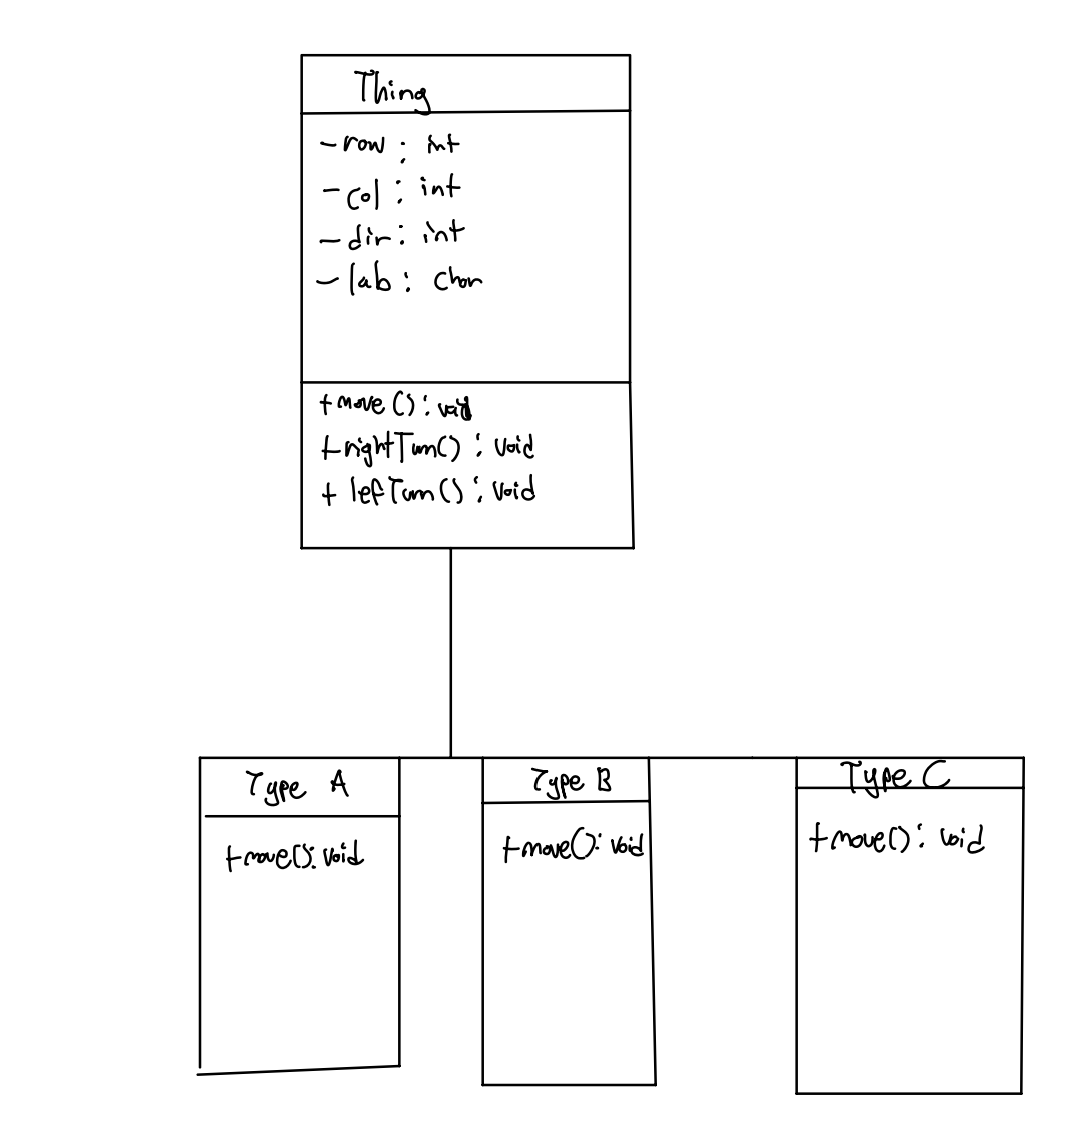 Thing
- row : int
- col : int
- dir : int
- lab : char
+ move () : void
+ rightTurn() : void
+ leftTurn () : void
Type A
+ move() : void
Type B
+ move() : void
Type C
+ move() : void